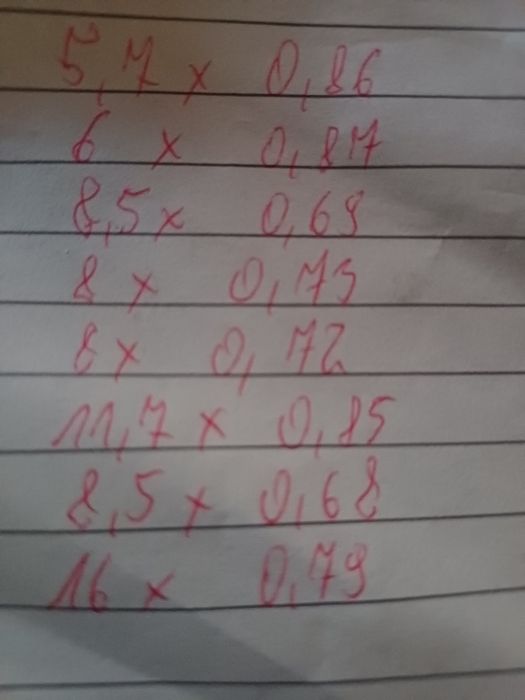 5,7 x 0,86
6 x 0,87
8,5 x 0,69
8 x 0,79
8 x 0,72
11,7 x 0,85
8,5 x 0,68
16 x 0,79